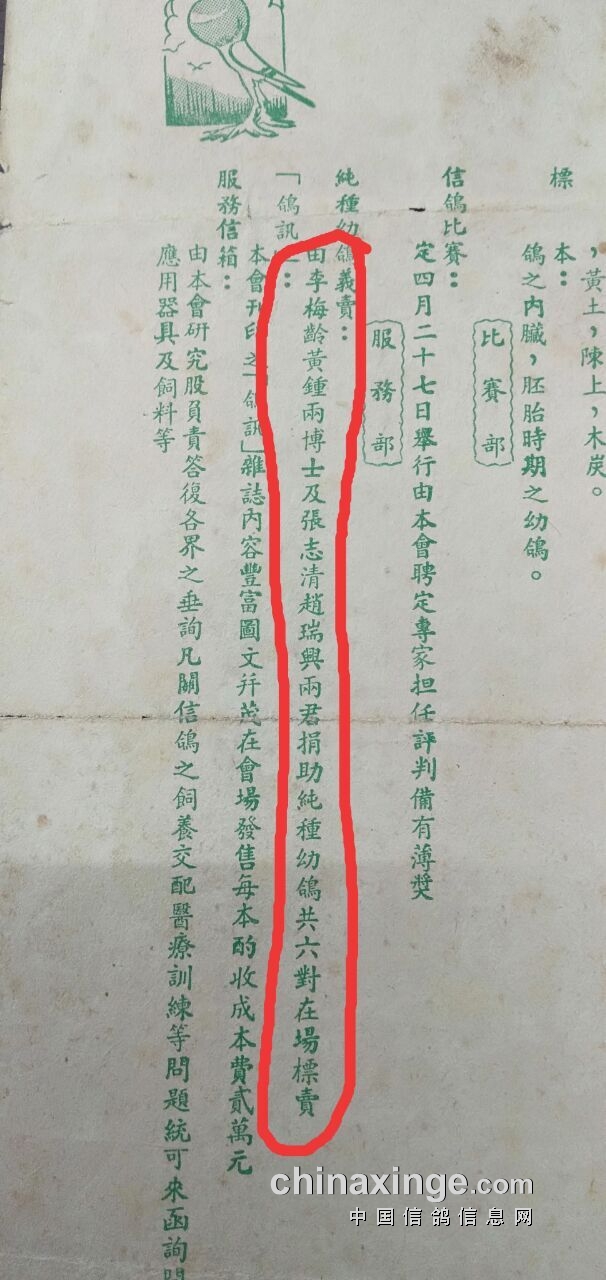 ，黃土，陳上，木炭。
標本：
鴿之內臟，胚胎時期之幼鴿。
比賽部
信鴿比賽：
定四月二十七日舉行由本會聘定專家担任評判備有薄獎
服務部
純種幼鴿義賣：
由李梅齡黃鍾兩博士及張志清趙瑞興兩君捐助純種幼鴿共六對在場標賣
「鴿訊」：
本會刊印之「鴿訊」雜誌內容豐富圖文幷茂在會場發售每本酌收成本費貳萬元
服務信箱：
由本會研究股負責答復各界之垂詢凡關信鴿之飼養交配醫療訓練等問題統可來函詢問
應用器具及飼料等
chinaxinge.com
中国信鸽信息网